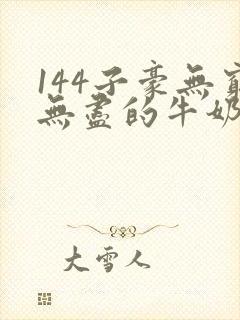 144子豪無窮
無盡的牛奶
大雪人